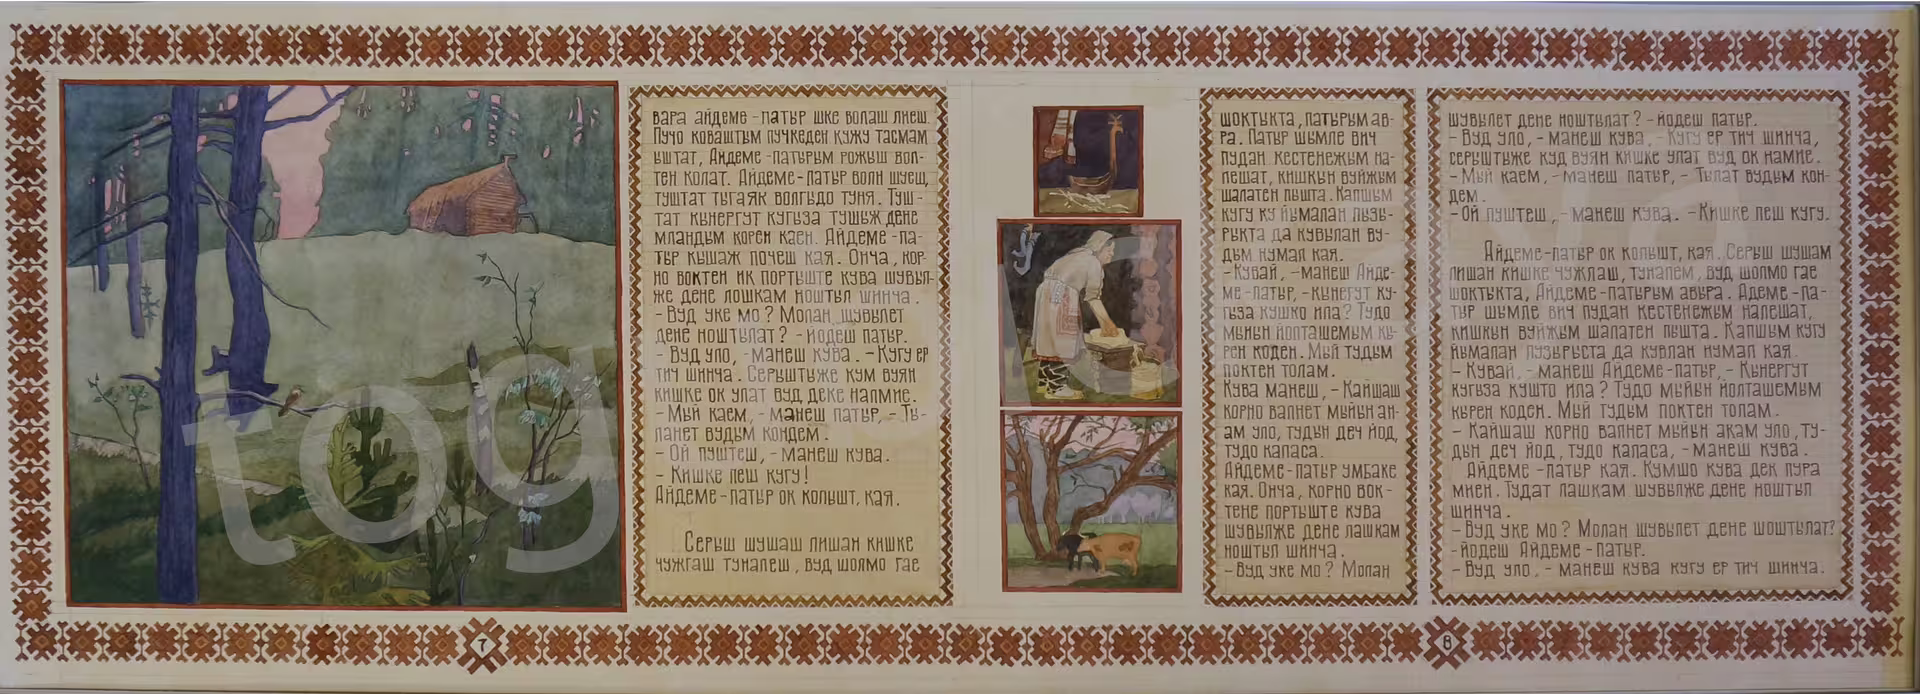 вара айдеме-патыр шке волаш лиеш.
Пучо коваштым пучкеден кужу тасмам
ыштат, Айдеме-патырым рожыш вол-
тен колат. Айдеме-патыр волн шуеш,
туштат тыгаяк волгыдо туня. Туш-
тат кынергут кугыза тушыж дене
мландым корен каен. Айдеме-па-
тыр кышаж почеш кая. Онча, кор-
но воктен ик портыште кува шувыл-
же дене лошкам ноштыл шинча.
- Вуд уке мо? Молан шувылет
дене ноштылат? - йодеш патыр.
- Вуд уло, - манеш кува. - Кугу ер
тич шинча. Серыштыже кум вуян
кишке ок улат вуд деке налмие.
- Мый каем, - манеш патыр, - Ты-
ланет вудым кондем.
- Ой пуштеш, - манеш кува.
- Кишке пеш кугу!
Айдеме-патыр ок колышт, кая.
Серыш шушаш лишан кишке
чужгаш туналеш, вуд шолмо гае
шоктыкта, патырым ав-
ра. Патыр шымле вич
пудан кестенежым на-
лешат, кишкын вуйжым
шалатен пышта. Капшым
кугу ку йымалан пызы-
рыкта да кувылан ву-
дым нумал кая.
- Кувай, - манеш Айде-
ме-патыр, - кынергут ку-
гыза кушко ила? Тудо
мыйын йолташемым кы-
рен коден. Мый тудым
поктен толам.
Кува манеш, - Кайшаш
корно валнет мыйын ак-
ам уло, тудын деч йод,
тудо каласа.
Айдеме-патыр умбаке
кая. Онча, корно вок-
тене портыште кува
шувылже дене лашкам
ноштыл шинча.
- Вуд уке мо? Молан
шувылет дене ноштылат? - йодеш патыр.
- Вуд уло, - манеш кува, - Кугу ер тич шинча,
серыштыже куд вуян кишке улат вуд ок намие.
- Мый каем, - манеш патыр, - Тылат вудым кон-
дем.
- Ой пуштеш, - манеш кува. - Кишке пеш кугу.
Айдеме-патыр ок колышт, кая. Серыш шушам
лишан кишке чужглаш, туналем, вуд шолмо гае
шоктыкта, Айдеме-патырым авыра. Адеме-па-
тыр шымле вич пудан кестенежым налешат,
кишкын вуйжым шалатен пышта. Капшым кугу
йымалан пузырыста да кувлан нумал кая.
- Кувай, - манеш Айдеме-патыр, - Кынергут
кугыза кушто ила? Тудо мыйын йолташемым
кырен коден. Мый тудым поктен толам.
- Кайшаш корно валнет мыйын акам уло, ту-
дын деч йод, тудо каласа, - манеш кува.
Айдеме-патыр кая. Кумшо кува дек пура
миен. Тудат лашкам шувылже дене ноштыл
шинча.
- Вуд уке мо? Молан шувылет дене шоштылат?
- йодеш Айдеме-патыр.
- Вуд уло, - манеш кува кугу ер тич шинча.
7
8